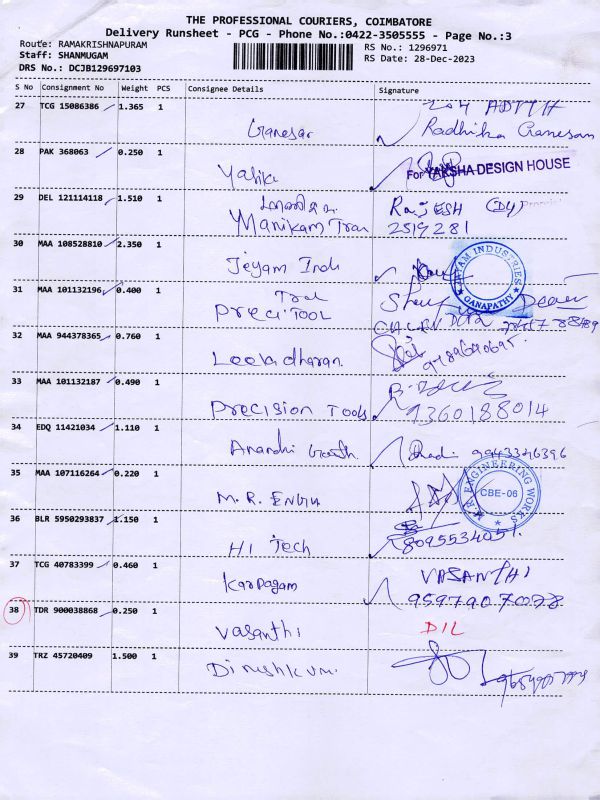 THE PROFESSIONAL COURIERS, COIMBATORE
Delivery Runsheet - PCG - Phone No.:0422-3505555 - Page No.:3
Route: RAMAKRISHNAPURAM RS No.: 1296971
Staff: SHANMUGAM RS Date: 28-Dec-2023
DRS No.: DCJB129697103
S No Consignment No Weight PCS Consignee Details Signature
27 TCG 15086386 1.365 1
Ganesar Radhika Ganesan
28 PAK 368063 0.250 1
For YAKSHA DESIGN HOUSE
29 DEL 121114118 1.510 1
RaJESH
Manikam Tran 2519281
30 MAA 108528810 2.350 1
Jeyam Inds
INDUSTRIES
GANAPATHY
31 MAA 101132196 0.400 1
Preci Tool
32 MAA 944378365 0.760 1
Leeladharan
33 MAA 101132187 0.490 1
Precision Tools 9360188014
34 EDQ 11421034 1.110 1
Anandhi 9943346396
35 MAA 107116264 0.220 1
M.R. Engg
M.R ENGINEERING WORKS
CBE-06
36 BLR 5950293837 1.150 1
Hi Tech 8095534051
37 TCG 40783399 0.460 1
Karpagam VASANTHI
9597907028
38 TDR 900038868 0.250 1
Vasanthi DIL
39 TRZ 45720409 1.500 1
Dineshkum.